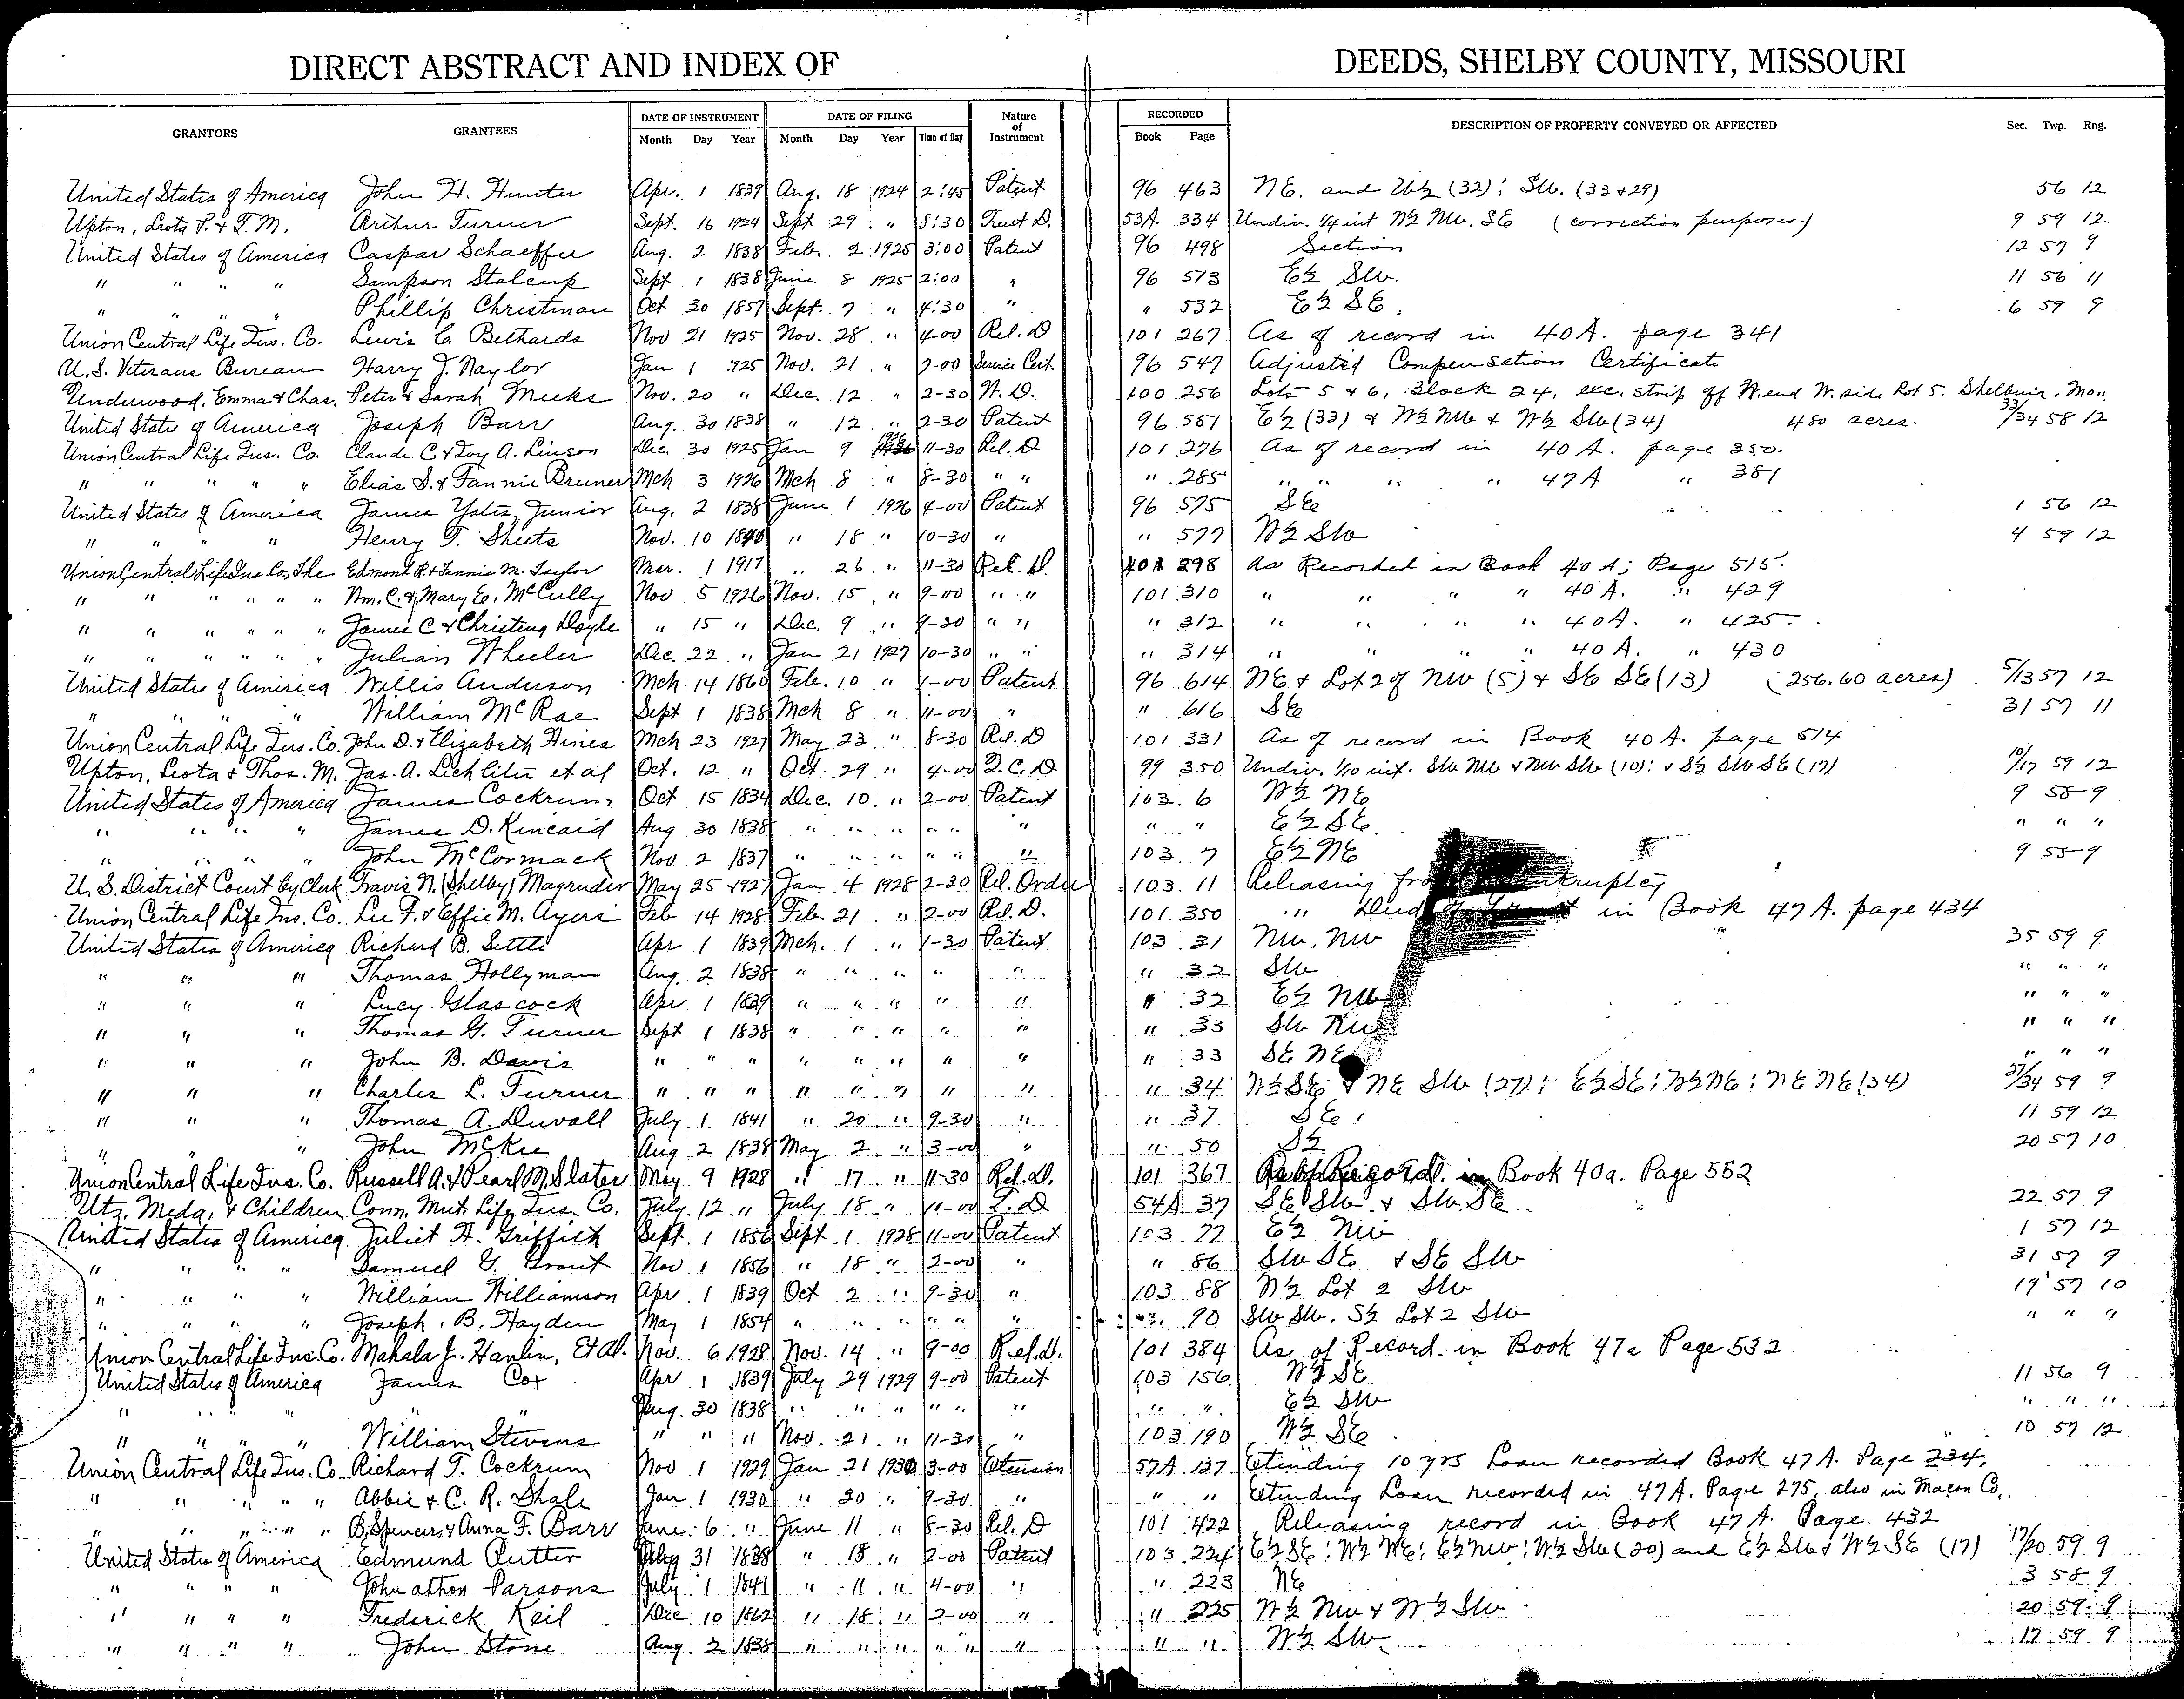 DIRECT ABSTRACT AND INDEX OF DEEDS, SHELBY COUNTY, MISSOURI
GRANTORS GRANTEES DATE OF INSTRUMENT DATE OF FILING Nature of Instrument RECORDED DESCRIPTION OF PROPERTY CONVEYED OR AFFECTED Sec. Twp. Rng.
Month Day Year Month Day Year Time of Day Book Page
United States of America John H. Hunter Apr. 1 1839 Aug. 18 1924 2:45 Patent 96 463 NE. and W½ (32); SW. (33+29) 56 12
Upton, Leota P. & T. M. Arthur Turner Sept. 16 1924 Sept 29 " 8:30 Trust D. 53A. 334 Undiv. 1/4 int W½ NW. SE (correction purposes) 9 59 12
United States of America Caspar Schaeffer Aug. 2 1838 Feb. 2 1925 3:00 Patent 96 498 Section 12 57 9
" " " " Sampson Stalcup Sept 1 1838 June 8 1925 2:00 " 96 573 E½ SW. 11 56 11
" " " " Phillip Christman Oct 30 1857 Sept. 7 " 4:30 " " 532 E½ SE. 6 59 9
Union Central Life Ins. Co. Lewis C. Bethards Nov 21 1925 Nov. 28 " 4-00 Rel. D 101 267 As of record in 40A. page 341
U.S. Veterans Bureau Harry J. Naylor Jan 1 1925 Nov. 21 " 2-00 Service Cert. 96 547 Adjusted Compensation Certificate
Underwood, Emma & Chas. Peter & Sarah Meeks Nov. 20 " Dec. 12 " 2-30 W. D. 100 256 Lots 5 & 6, Block 24, exc. strip off W. end W. side Lot 5. Shelbina, Mo.
United State of America Joseph Barr Aug. 30 1838 " 12 " 2-30 Patent 96 551 E½ (33) & W½ NW & W½ SW (34) 480 acres. 33/34 58 12
Union Central Life Ins. Co. Claude C. & Ivy A. Linson Dec. 30 1925 Jan 9 1926 11-30 Rel. D 101 276 As of record in 40A. page 350.
" " " " " Elias S. & Fannie Bruner Mch 3 1926 Mch 8 " 8-30 " " " 285 " " " " 47A " 381
United States of America James Yates, Junior Aug. 2 1838 June 1 1926 4-00 Patent 96 575 SE 1 56 12
" " " " Henry T. Sheets Nov. 10 1840 " 18 " 10-30 " " 577 W½ SW 4 59 12
Union Central Life Ins. Co., The Edmond R. & Fannie M. Taylor Mar. 1 1917 " 26 " 11-30 Rel. D. 101 298 As Recorded in Book 40A; Page 515.
" " " " " " Wm. C. & Mary E. McCully Nov 5 1926 Nov. 15 " 9-00 " " 101 310 " " " " 40A. " 429
" " " " " " James C. & Christina Doyle " 15 " Dec. 9 " 9-30 " " " 312 " " " " 40A. " 425.
" " " " " " Julian Wheeler Dec. 22 " Jan 21 1927 10-30 " " " 314 " " " " 40A. " 430
United States of America Willis Anderson Mch 14 1860 Feb. 10 " 1-00 Patent 96 614 NE & Lot 2 of NW (5) & SE SE (13) (256.60 acres) 5/13 57 12
" " " " William McRae Sept. 1 1838 Mch 8 " 11-00 " " 616 SE 31 57 11
Union Central Life Ins. Co. John D. & Elizabeth Hines Mch 23 1927 May 23 " 8-30 Rel. D 101 331 As of record in Book 40A. page 514
Upton, Leota & Thos. M. Jas. A. Lichliter et al Oct. 12 " Oct. 29 " 4-00 Q. C. D. 99 350 Undiv. 1/10 int. SW NW & NW SW (10); & S½ SW SE (17) 10/17 59 12
United States of America James Cockrum Oct 15 1834 Dec. 10 " 2-00 Patent 103 6 W½ NE 9 58 9
" " " " James D. Kincaid Aug 30 1838 " " " " " " " " E½ SE. " " "
" " " " John McCormack Nov. 2 1837 " " " " " " 103 7 E½ NE 9 58 9
U. S. District Court by Clerk Travis N. (Shelby) Magruder May 25 1927 Jan 4 1928 2-30 Rel. Order 103 11 Releasing from Bankruptcy
Union Central Life Ins. Co. Lee F. & Effie M. Ayers Feb 14 1928 Feb. 21 " 2-00 Rel. D. 101 350 " Deed of Trust in Book 47A. page 434
United States of America Richard B. Settle Apr 1 1839 Mch. 1 " 1-30 Patent 103 31 NW. NW 35 59 9
" " " Thomas Hollyman Aug. 2 1838 " " " " " " 32 SW " " "
" " " Lucy Glascock Apr 1 1839 " " " " " " 32 E½ NW " " "
" " " Thomas G. Turner Sept 1 1838 " " " " " " 33 SW NW " " "
" " " John B. Davis " " " " " " " " " 33 SE NE " " "
" " " Charles L. Turner " " " " " " " " " 34 W½ SE & NE SW (27); E½ SE; W½ NE; NE NE (34) 27/34 59 9
" " " Thomas A. Duvall July 1 1841 " 20 " 9-30 " " 37 SE. 11 59 12
" " John McKee Aug 2 1838 May 2 " 3-00 " " 50 S½ 20 57 10
Union Central Life Ins. Co. Russell A. & Pearl M. Slater May 9 1928 " 17 " 11-30 Rel. D. 101 367 in Book 40a. Page 552
Utz, Meda, & Children Conn. Mut. Life Ins. Co. July 12 " July 18 " 11-00 T. D 54A 37 SE SW & SW SE 22 57 9
United States of America Juliet H. Griffith Sept. 1 1856 Sept 1 1928 11-00 Patent 103 77 E½ NW 1 57 12
" " " " Samuel G. Trout Nov. 1 1856 " 18 " 2-00 " " 86 SW SE & SE SW 31 57 9
" " " " William Williamson Apr. 1 1839 Oct 2 " 9-30 " 103 88 N½ Lot 2 SW 19 57 10
" " " " Joseph B. Hayden May 1 1854 " " " " " " 103 90 SW SW. S½ Lot 2 SW " " "
Union Central Life Ins. Co. Mahala J. Hanlin, Et Al. Nov. 6 1928 Nov. 14 " 9-00 Rel. D. 101 384 As of Record in Book 47a Page 532
United States of America James Cox Apr 1 1839 July 29 1929 9-00 Patent 103 156 W½ SE 11 56 9
" " " " " Aug. 30 1838 " " " " " " " " E½ SW " " "
" " " " William Stevens " " " Nov. 21 " 11-30 " 103 190 W½ SE 10 57 12
Union Central Life Ins. Co. Richard T. Cockrum Nov 1 1929 Jan 21 1930 3-00 Extension 57A 127 Extending 10 yrs Loan recorded Book 47A. Page 234.
" " " " " Abbie & C. R. Shale Jan 1 1930 " 30 " 9-30 " " " Extending Loan recorded in 47A. Page 275, also in Macon Co.
" " " " " B. Spencer & Anna F. Barr June 6 " June 11 " 8-30 Rel. D 101 422 Releasing record in Book 47A. Page. 432
United States of America Edmund Rutter Aug 31 1838 " 18 " 2-00 Patent 103 224 E½ SE; W½ NE; E½ NW; W½ SW (20) and E½ SW & W½ SE (17) 17/20 59 9
" " " " John athon Parsons July 1 1841 " 11 " 4-00 " " 223 NE 3 58 9
" " " " Frederick Keil Dec 10 1862 " 18 " 2-00 " " 225 W½ NW & W½ SW 20 59 9
" " " " John Stone Aug. 2 1838 " " " " " " " " W½ SW 17 59 9